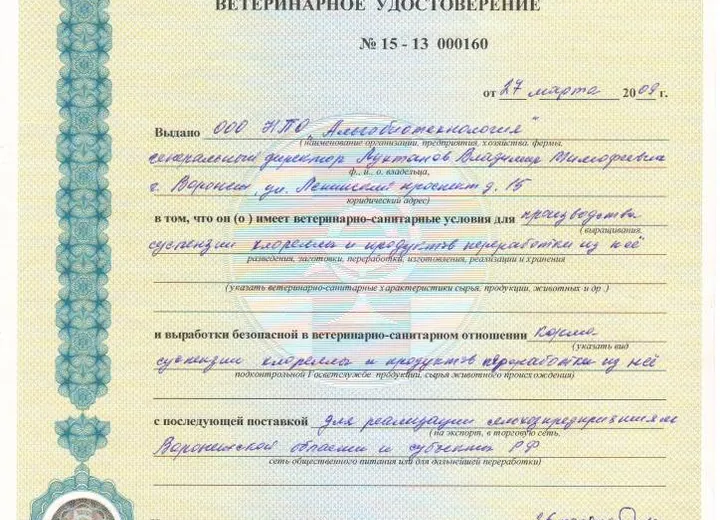 ВЕТЕРИНАРНОЕ УДОСТОВЕРЕНИЕ
№ 15 - 13 000160
от 27 марта 2009 г.
Выдано ООО НПО „Альгобиотехнология"
(наименование организации, предприятия, хозяйства, фермы,
генеральный директор Лухтанов Владимир Тимофеевич
ф., и., о. владельца,
г. Воронеж, ул. Ленинский проспект д. 15
юридический адрес)
в том, что он (о ) имеет ветеринарно-санитарные условия для производства
( выращивания,
суспензии хлореллы и продуктов переработки из неё
разведения, заготовки, переработки, изготовления, реализации и хранения
(указать ветеринарно-санитарные характеристики сырья, продукции, животных и др.)
и выработки безопасной в ветеринарно-санитарном отношении корма
(указать вид
суспензии хлореллы и продуктов переработки из неё
подконтрольной Госветслужбе продукции, сырья животного происхождения)
с последующей поставкой для реализации сельхозпредприятиям
(на экспорт, в торговую сеть,
Воронежской области и субъекты РФ
сеть общественного питания или для дальнейшей переработки)